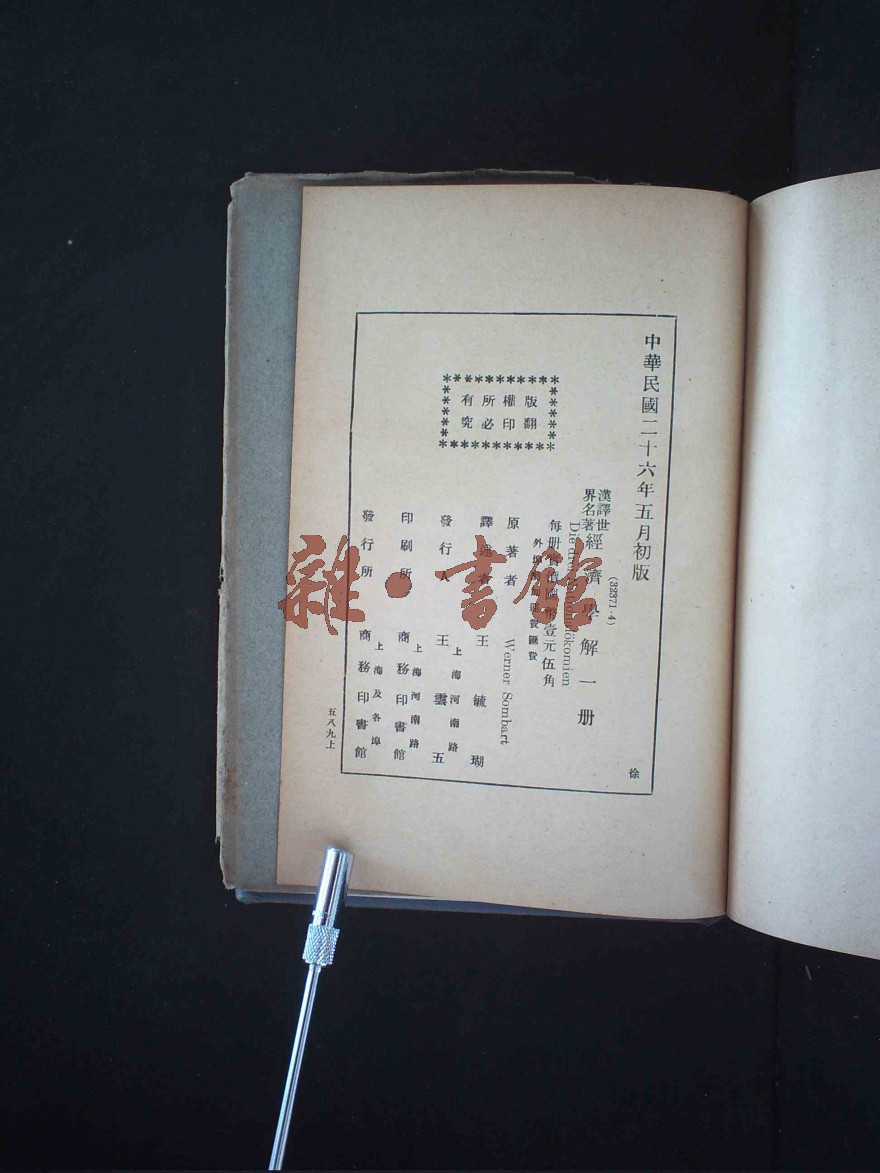 中華民國二十六年五月初版
(32371·4)
漢譯世界名著
經濟學解一册
Die drei Nationalökomien
每册實價國幣壹元伍角
外埠酌加運費匯費
原著者 Werner Sombart
譯述者 王毓瑚
發行人 王雲五
上海河南路
印刷所 商務印書館
上海河南路
發行所 商務印書館
上海及各埠
版權所有
翻印必究
徐
五八九上
雜·書館